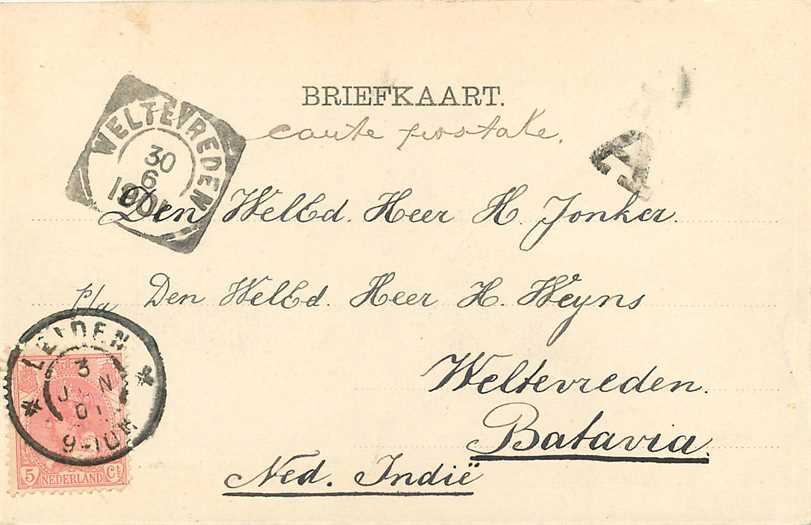 BRIEFKAART.
carte postale.
WELTEVREDEN
30
6
1901
Den WelEd. Heer H. Jonker.
p/a Den WelEd. Heer H. Weyns
Weltevreden.
Batavia.
Ned. Indië
LEIDEN
3
JUN
01
9-10V
5 Ct
NEDERLAND